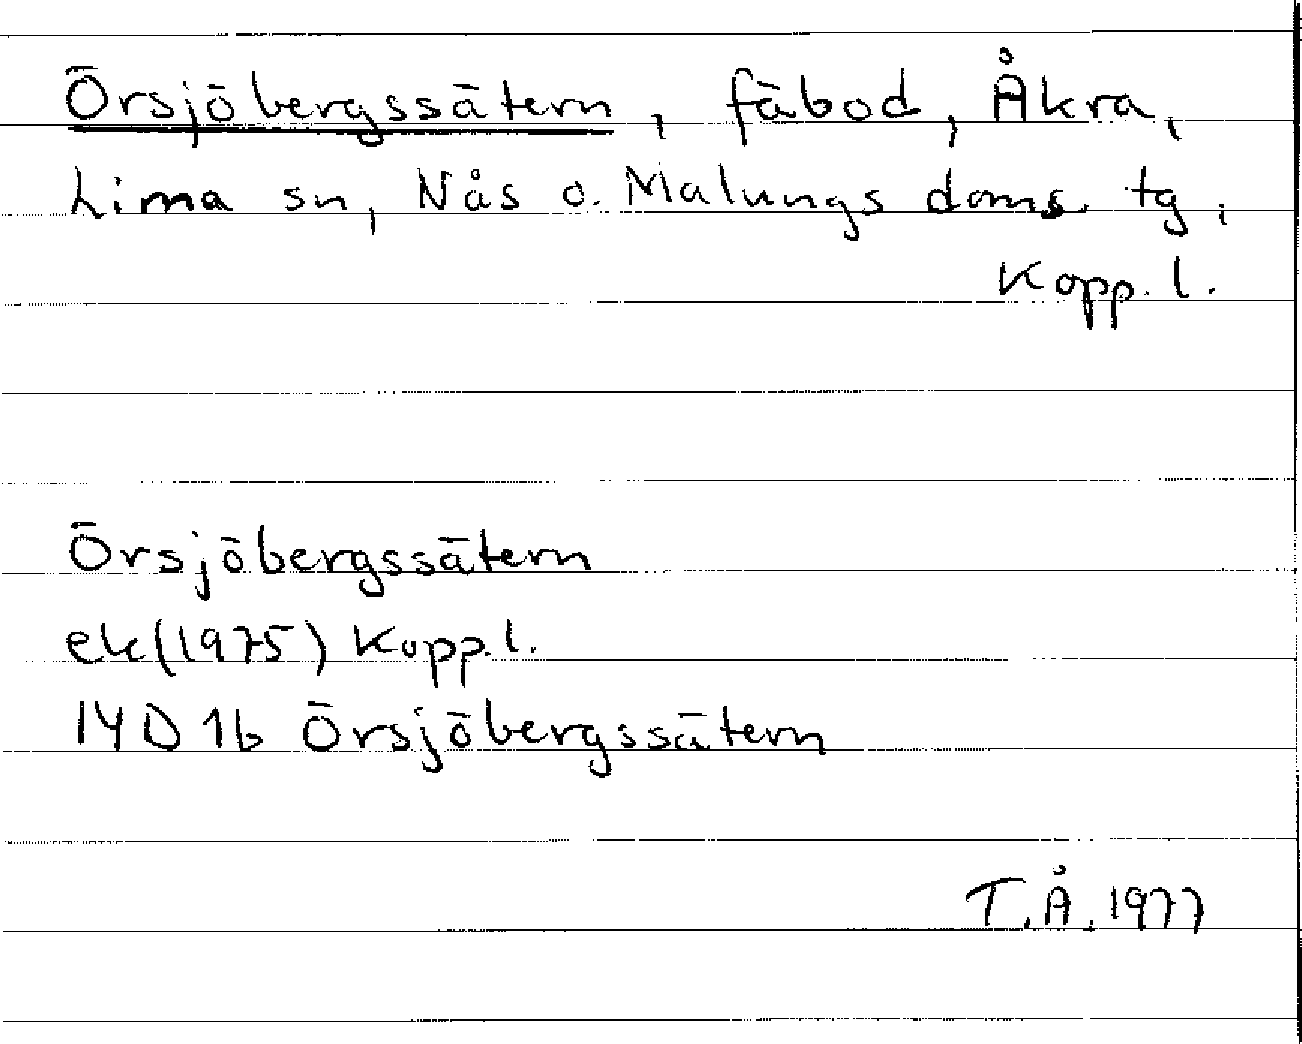 Örsjöbergssätern, fäbod, Åkra,
Lima sn, Nås o. Malungs doms. tg.
Kopp. l.
Örsjöbergssätern
ek(1975) Kopp.l.
14D 1b Örsjöbergssätern
T.Å. 1977